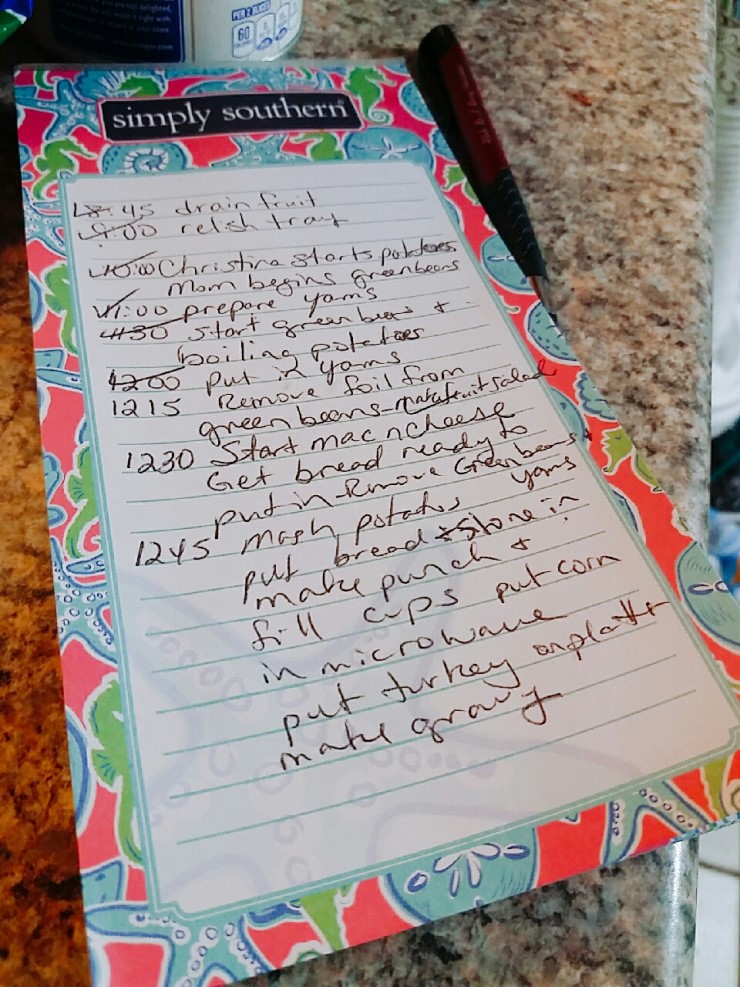 simply southern
8:45 drain fruit
9:00 relish tray
10:00 Christina starts potatoes
Mom begins greenbeans
11:00 prepare yams
1130 start green beans +
boiling potatoes
1200 put in yams
1215 Remove foil from
green beans - make fruit salad
1230 Start mac n cheese
Get bread ready to
put in Remove Greenbeans +
yams
1245 mash potatoes
put bread in
make punch +
fill cups put corn
in microwave
put turkey on platter
make gravy
60